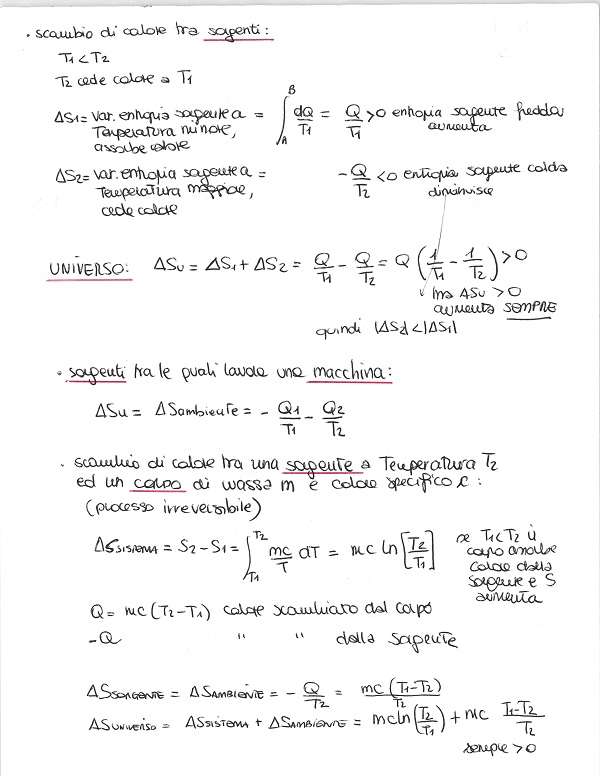 • scambio di calore tra sorgenti:
T1 < T2
T2 cede calore a T1
ΔS1 = var. entropia sorgente a = ∫_A^B dQ/T1 = Q/T1 > 0 entropia sorgente fredda
Temperatura minore, aumenta
assorbe calore
ΔS2 = var. entropia sorgente a = - Q/T2 < 0 entropia sorgente calda
Temperatura maggiore, diminuisce
cede calore
UNIVERSO: ΔSu = ΔS1 + ΔS2 = Q/T1 - Q/T2 = Q (1/T1 - 1/T2) > 0
ma ΔSu > 0
aumenta SEMPRE
quindi |ΔS2| < |ΔS1|
• sorgenti tra le quali lavora una macchina:
ΔSu = ΔSambiente = - Q1/T1 - Q2/T2
• scambio di calore tra una sorgente a Temperatura T2
ed un corpo di massa m e calore specifico c:
(processo irreversibile)
ΔSSISTEMA = S2 - S1 = ∫_T1^T2 mc/T dT = mc ln [T2/T1] se T1 < T2 il
corpo assorbe
calore dalla
sorgente e S
aumenta
Q = mc (T2 - T1) calore scambiato dal corpo
-Q " " dalla sorgente
ΔSSORGENTE = ΔSAMBIENTE = - Q/T2 = mc (T1-T2)/T2
ΔSUNIVERSO = ΔSSISTEMA + ΔSAMBIENTE = mc ln (T2/T1) + mc T1-T2/T2
sempre > 0